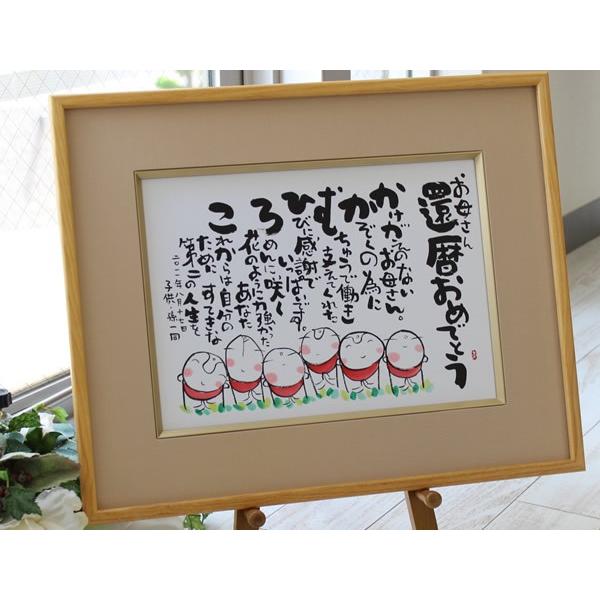 お母さん
還暦おめでとう
かけがえのない
お母さん。
かぞくの為に
むちゅうで働き
支えてくれた
ひびに感謝で
いっぱいです。
ろめんに咲く
花のように力強かった
あなた
これからは自分の
ために すてきな
第二の人生を
二〇一一年八月十七日
子供・孫一同